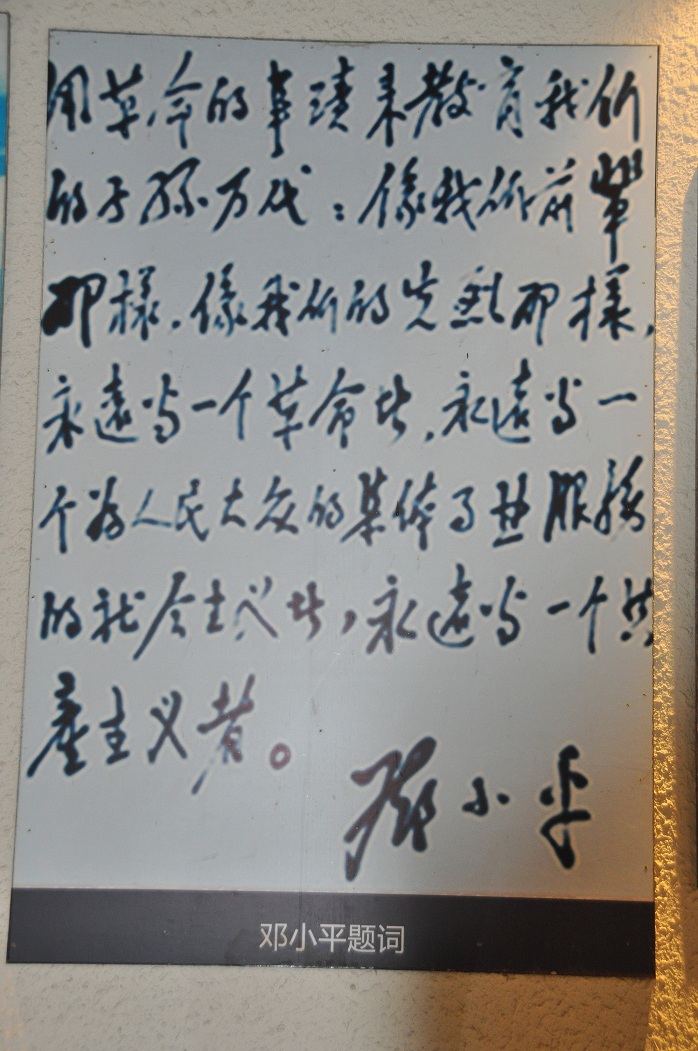 用革命的事蹟来教育我们
的子孙万代：像我们前輩
那樣，像我们的先烈那樣，
永遠当一个革命者，永遠当一
个为人民大众的集体事业服務
的社会主义者，永遠当一个共
產主义者。
鄧小平
邓小平题词